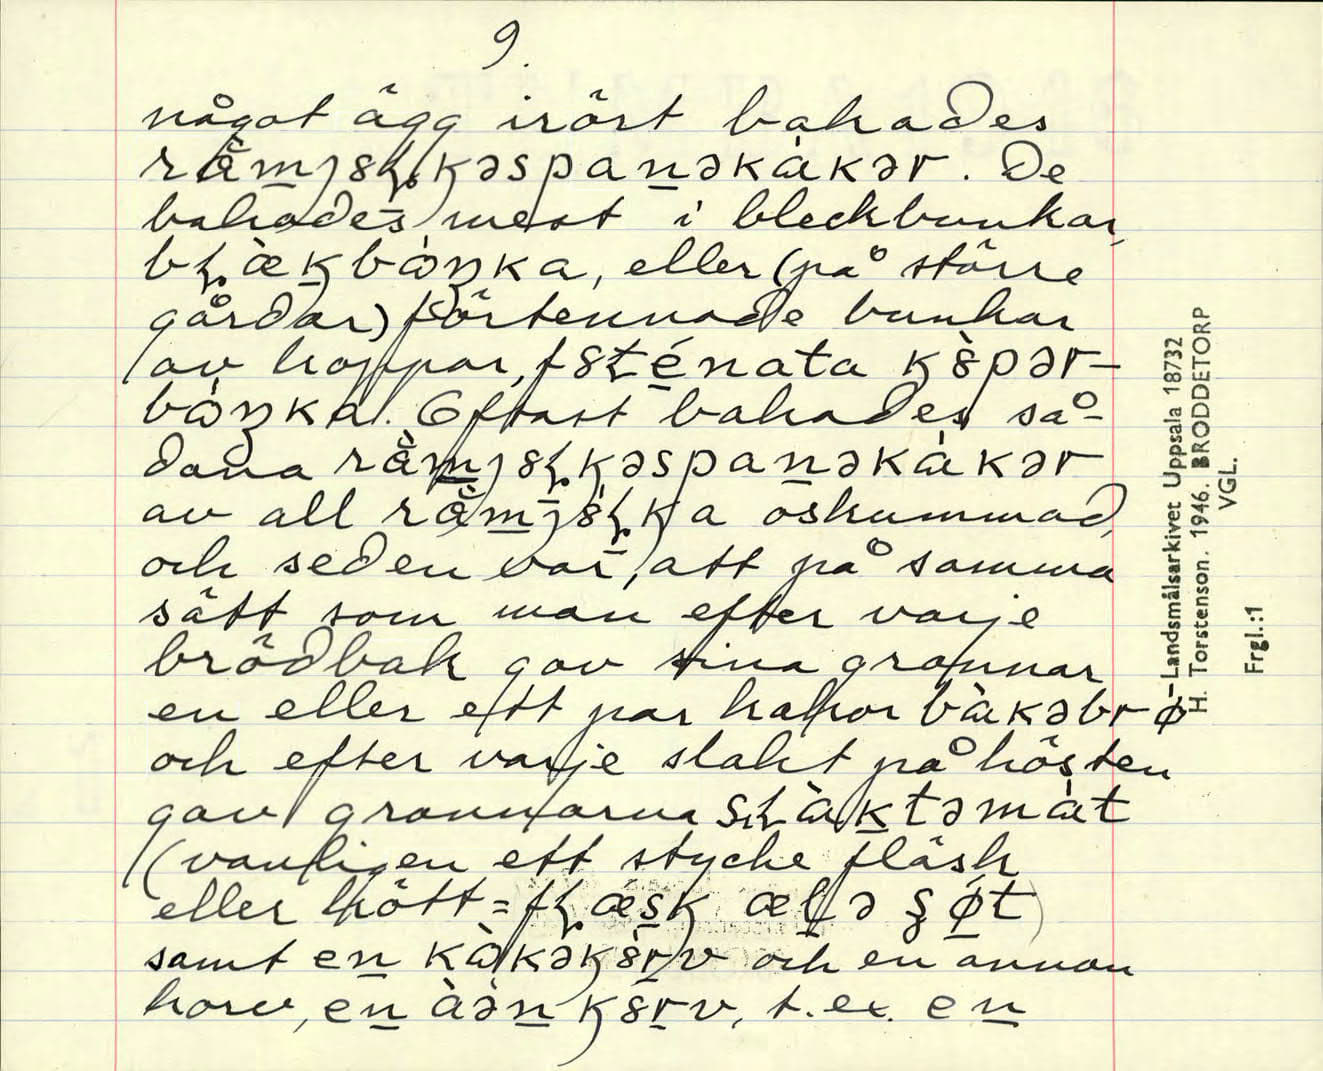 9.
något ägg irört bakades
rå̀m̲jȣɬkəspan̲əkàkər. De
bakades mest i bleckbunkar,
bɬæ̀kbòŋka, eller (på större
gårdar) förtennade bunkar
av koppar, fȣʈé̲nata kȣ̀pər-
bòŋka. Oftast bakades så-
dana rå̀m̲jȣɬkəspan̲əkàkər
av all rå̀m̲jȣ́ɬka oskummad,
och seden var, att på samma
sätt som man efter varje
brödbak gav sina grannar
en eller ett par kakor bàkəbrø-
och efter varje slakt på hösten
gav grannarna sɬàk̲təmàt
(vanligen ett stycke fläsk
eller kött = fɬǽs̲k æɬə ʂǿ̲t)
samt en̲ kàkəkȣ̀r̲v och en annan
korv, en̲ àən̲ kȣr̲v, t.ex. en̲
Landsmålsarkivet Uppsala 18732
H. Torstenson. 1946. BRODDETORP
VGL.
Frgl.:1